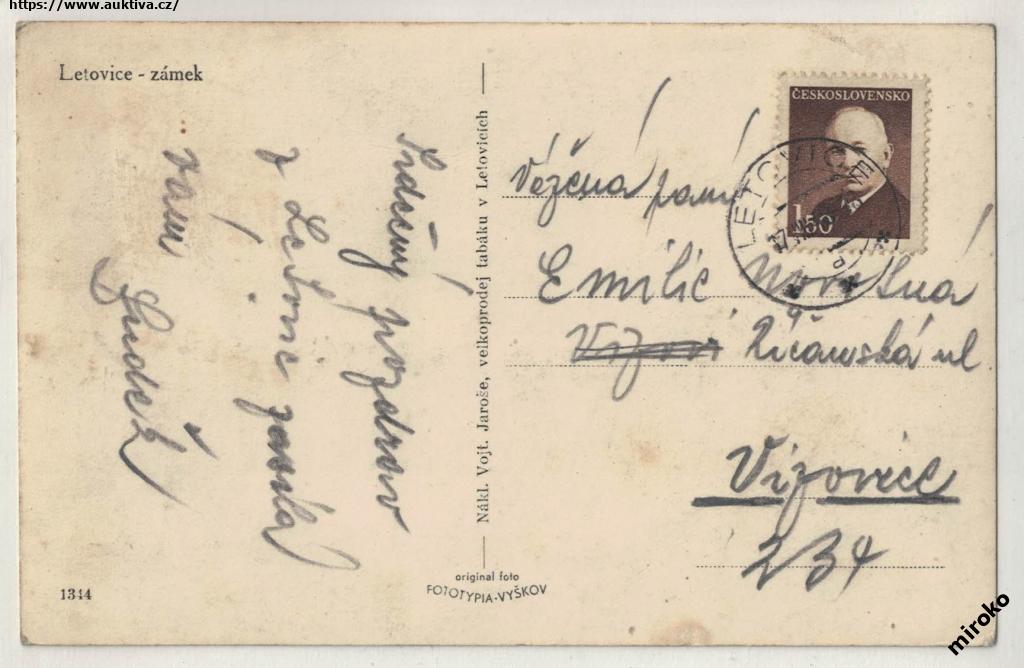 https://www.auktiva.cz/
Letovice - zámek
Srdečný pozdrav
z Letovic zasílá
Vám
Nákl. Vojt. Jaroše, velkoprodej tabáku v Letovicích
original foto
FOTOTYPIA-VYŠKOV
1344
ČESKOSLOVENSKO
1.50
LETOVICE
Vážená paní
Emilie Novotná
Říčanská ul
Vizovice
234
miroko